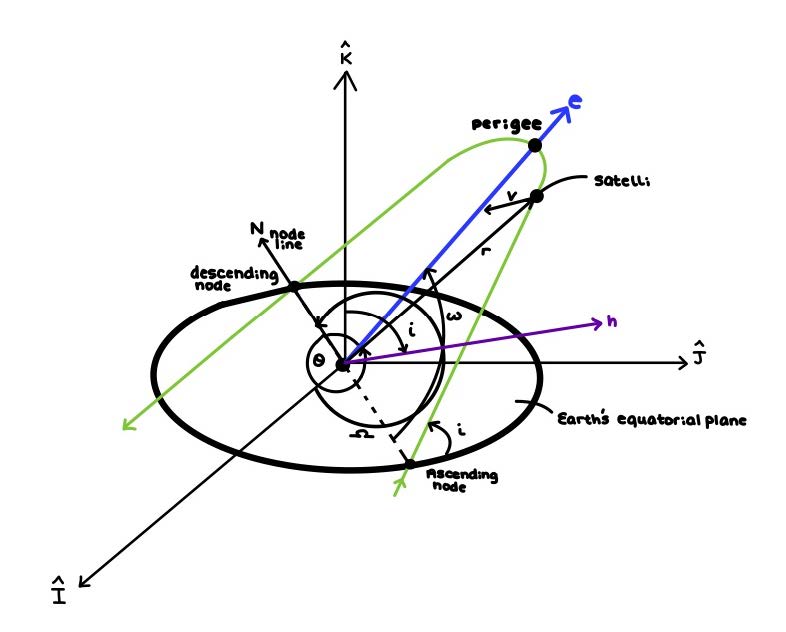 K̂
e
perigee
satelli
v
N node
line
r
descending
node
ω
i
h
Ĵ
θ
Earth's equatorial plane
i
Ω
Ascending
node
Î